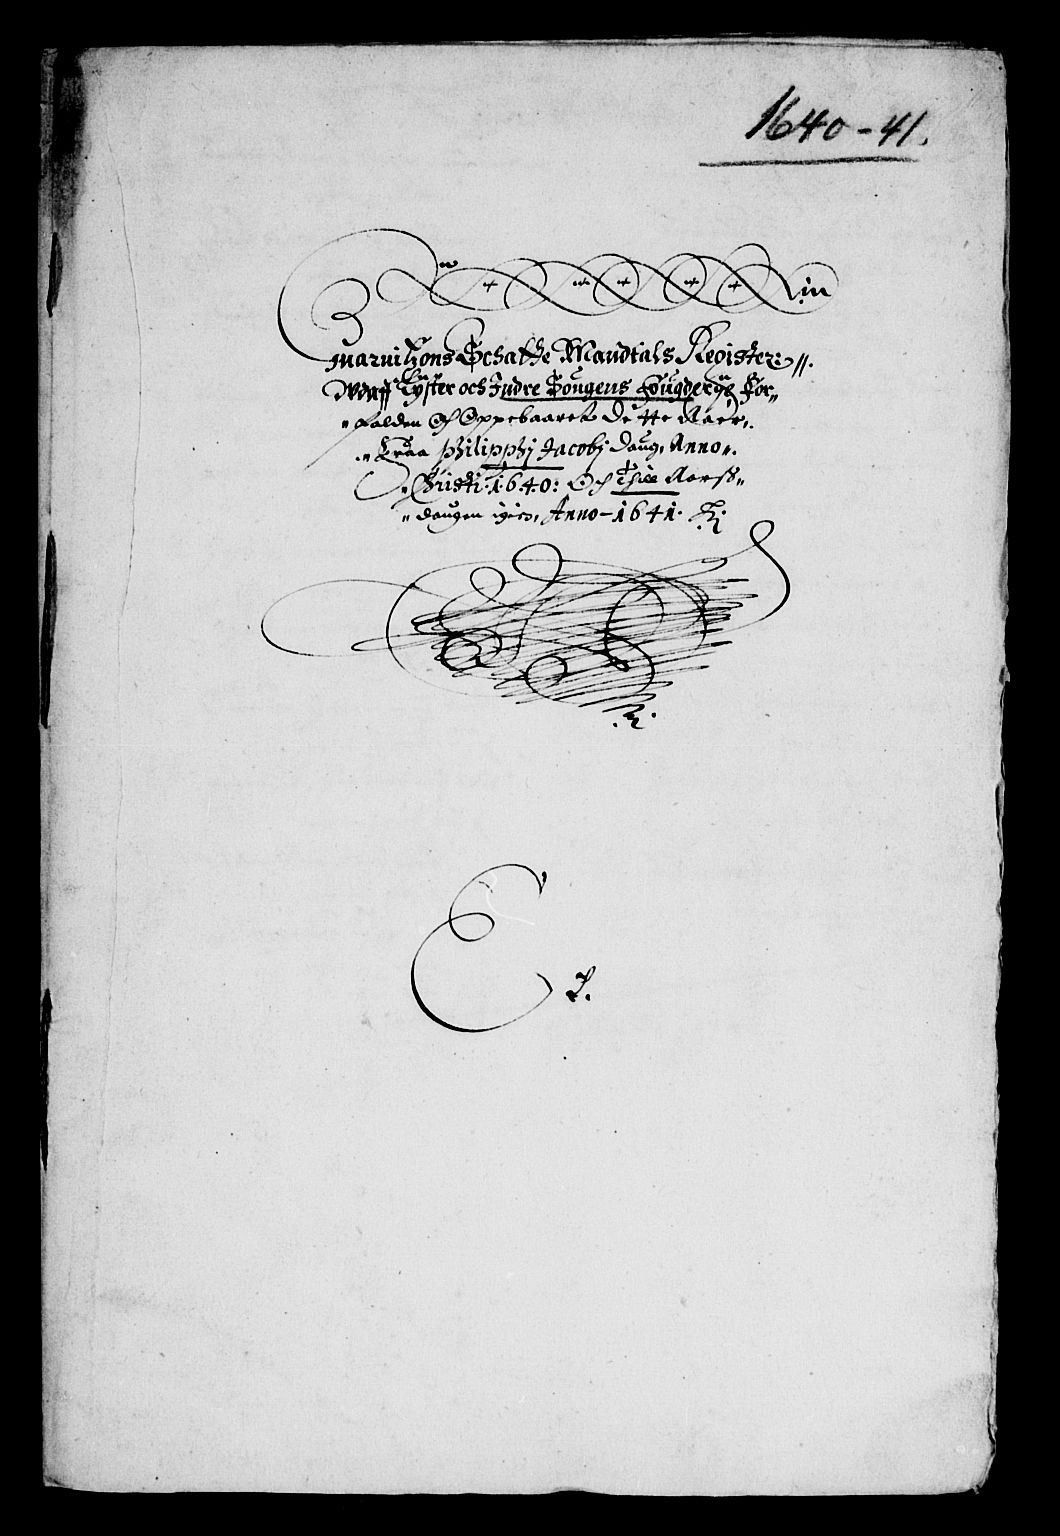 1640-41.
Guarnitzons Schatte Mandtals Register
Wdaff Lyster och Indre Sougens Fougderye For-
falden Och Oppebaaret Dette Aaer,
Fraa Philippi Jacobi Daug, Anno
Christi 1640: Och Thill Aarss
daugen igien, Anno 1641.
E